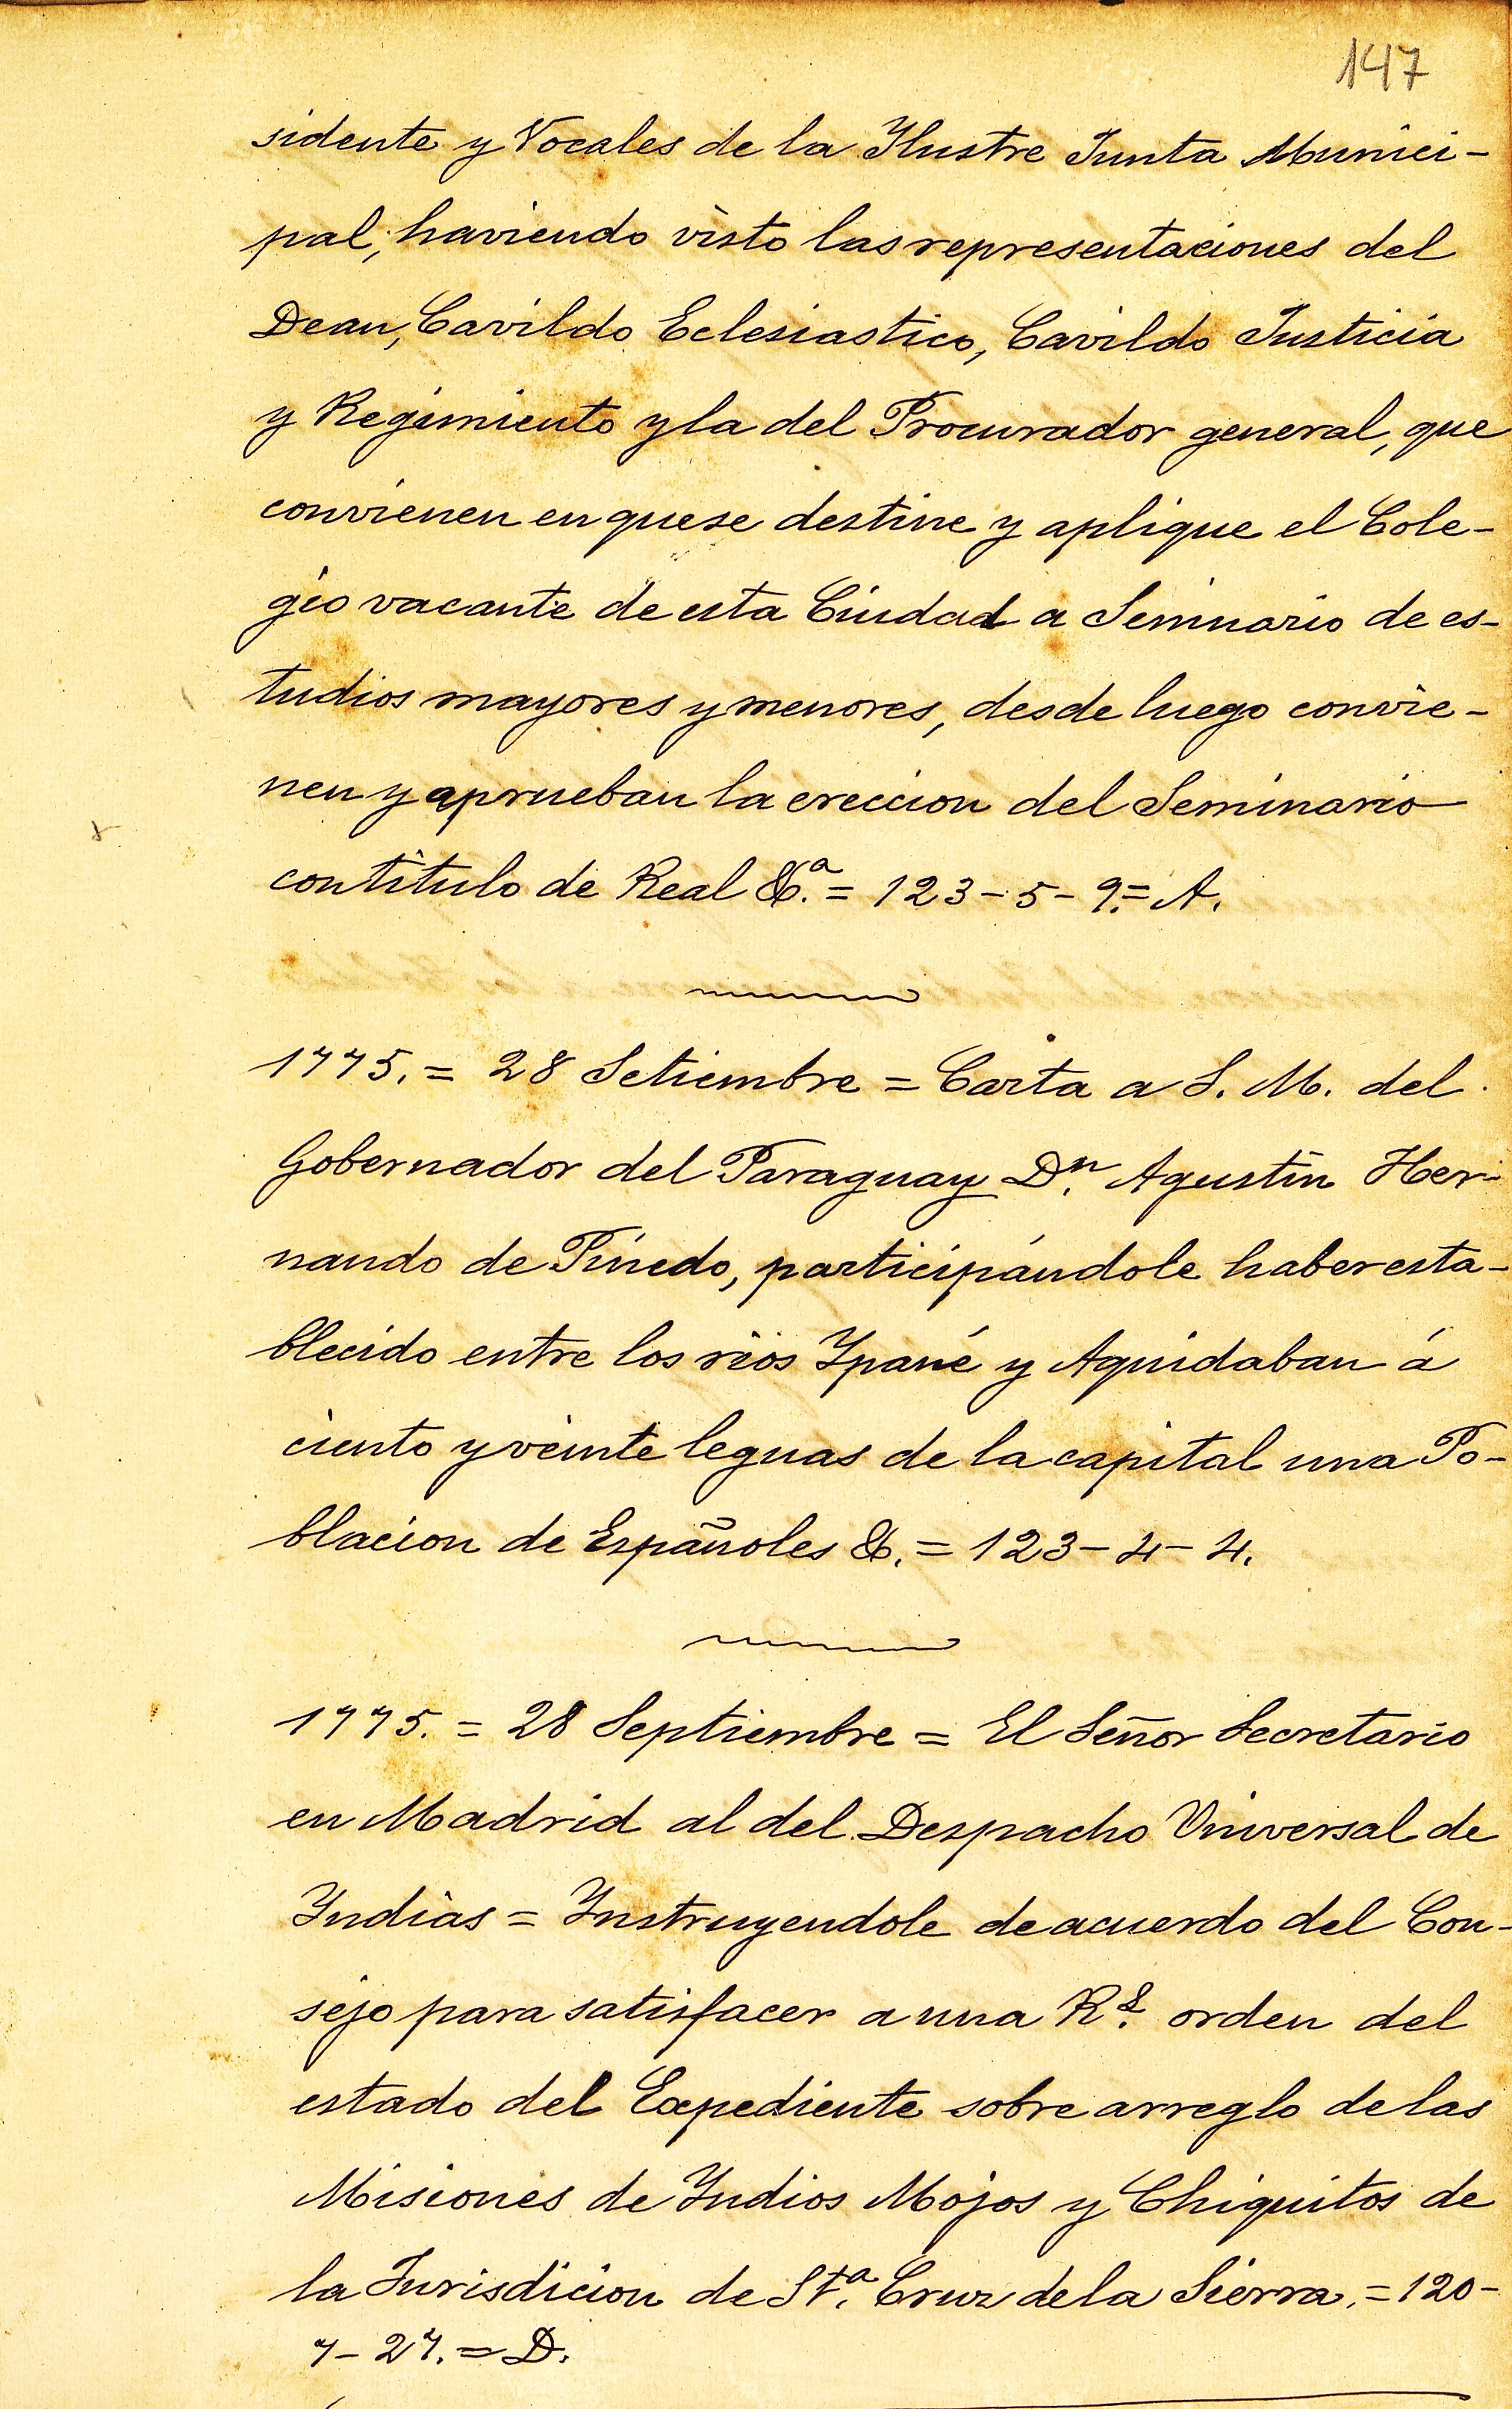 147
sidente y Vocales de la Ilustre Junta Munici-
pal, haviendo visto las representaciones del
Dean, Cavildo Eclesiastico, Cavildo Justicia
y Regimiento y la del Procurador general, que
convienen en que se destine y aplique el Cole-
gio vacante de esta Ciudad a Seminario de es-
tudios mayores y menores, desde luego convie-
nen y aprueban la ereccion del Seminario
con titulo de Real &.ª = 123-5-9.= A.
1775. = 28 Setiembre = Carta a S. M. del
Gobernador del Paraguay D.n Agustin Her-
nando de Pinedo, participándole haber esta-
blecido entre los rios Ypané y Aquidaban á
ciento y veinte leguas de la capital una Po-
blacion de Españoles &. = 123-4-4.
1775. = 28 Septiembre = El Señor Secretario
en Madrid al del Despacho Universal de
Yndias = Ynstruyendole de acuerdo del Con-
sejo para satisfacer a una R.l orden del
estado del Expediente sobre arreglo de las
Misiones de Yndios Mojos y Chiquitos de
la Jurisdicion de St.ª Cruz de la Sierra. = 120-
7-27. = D.